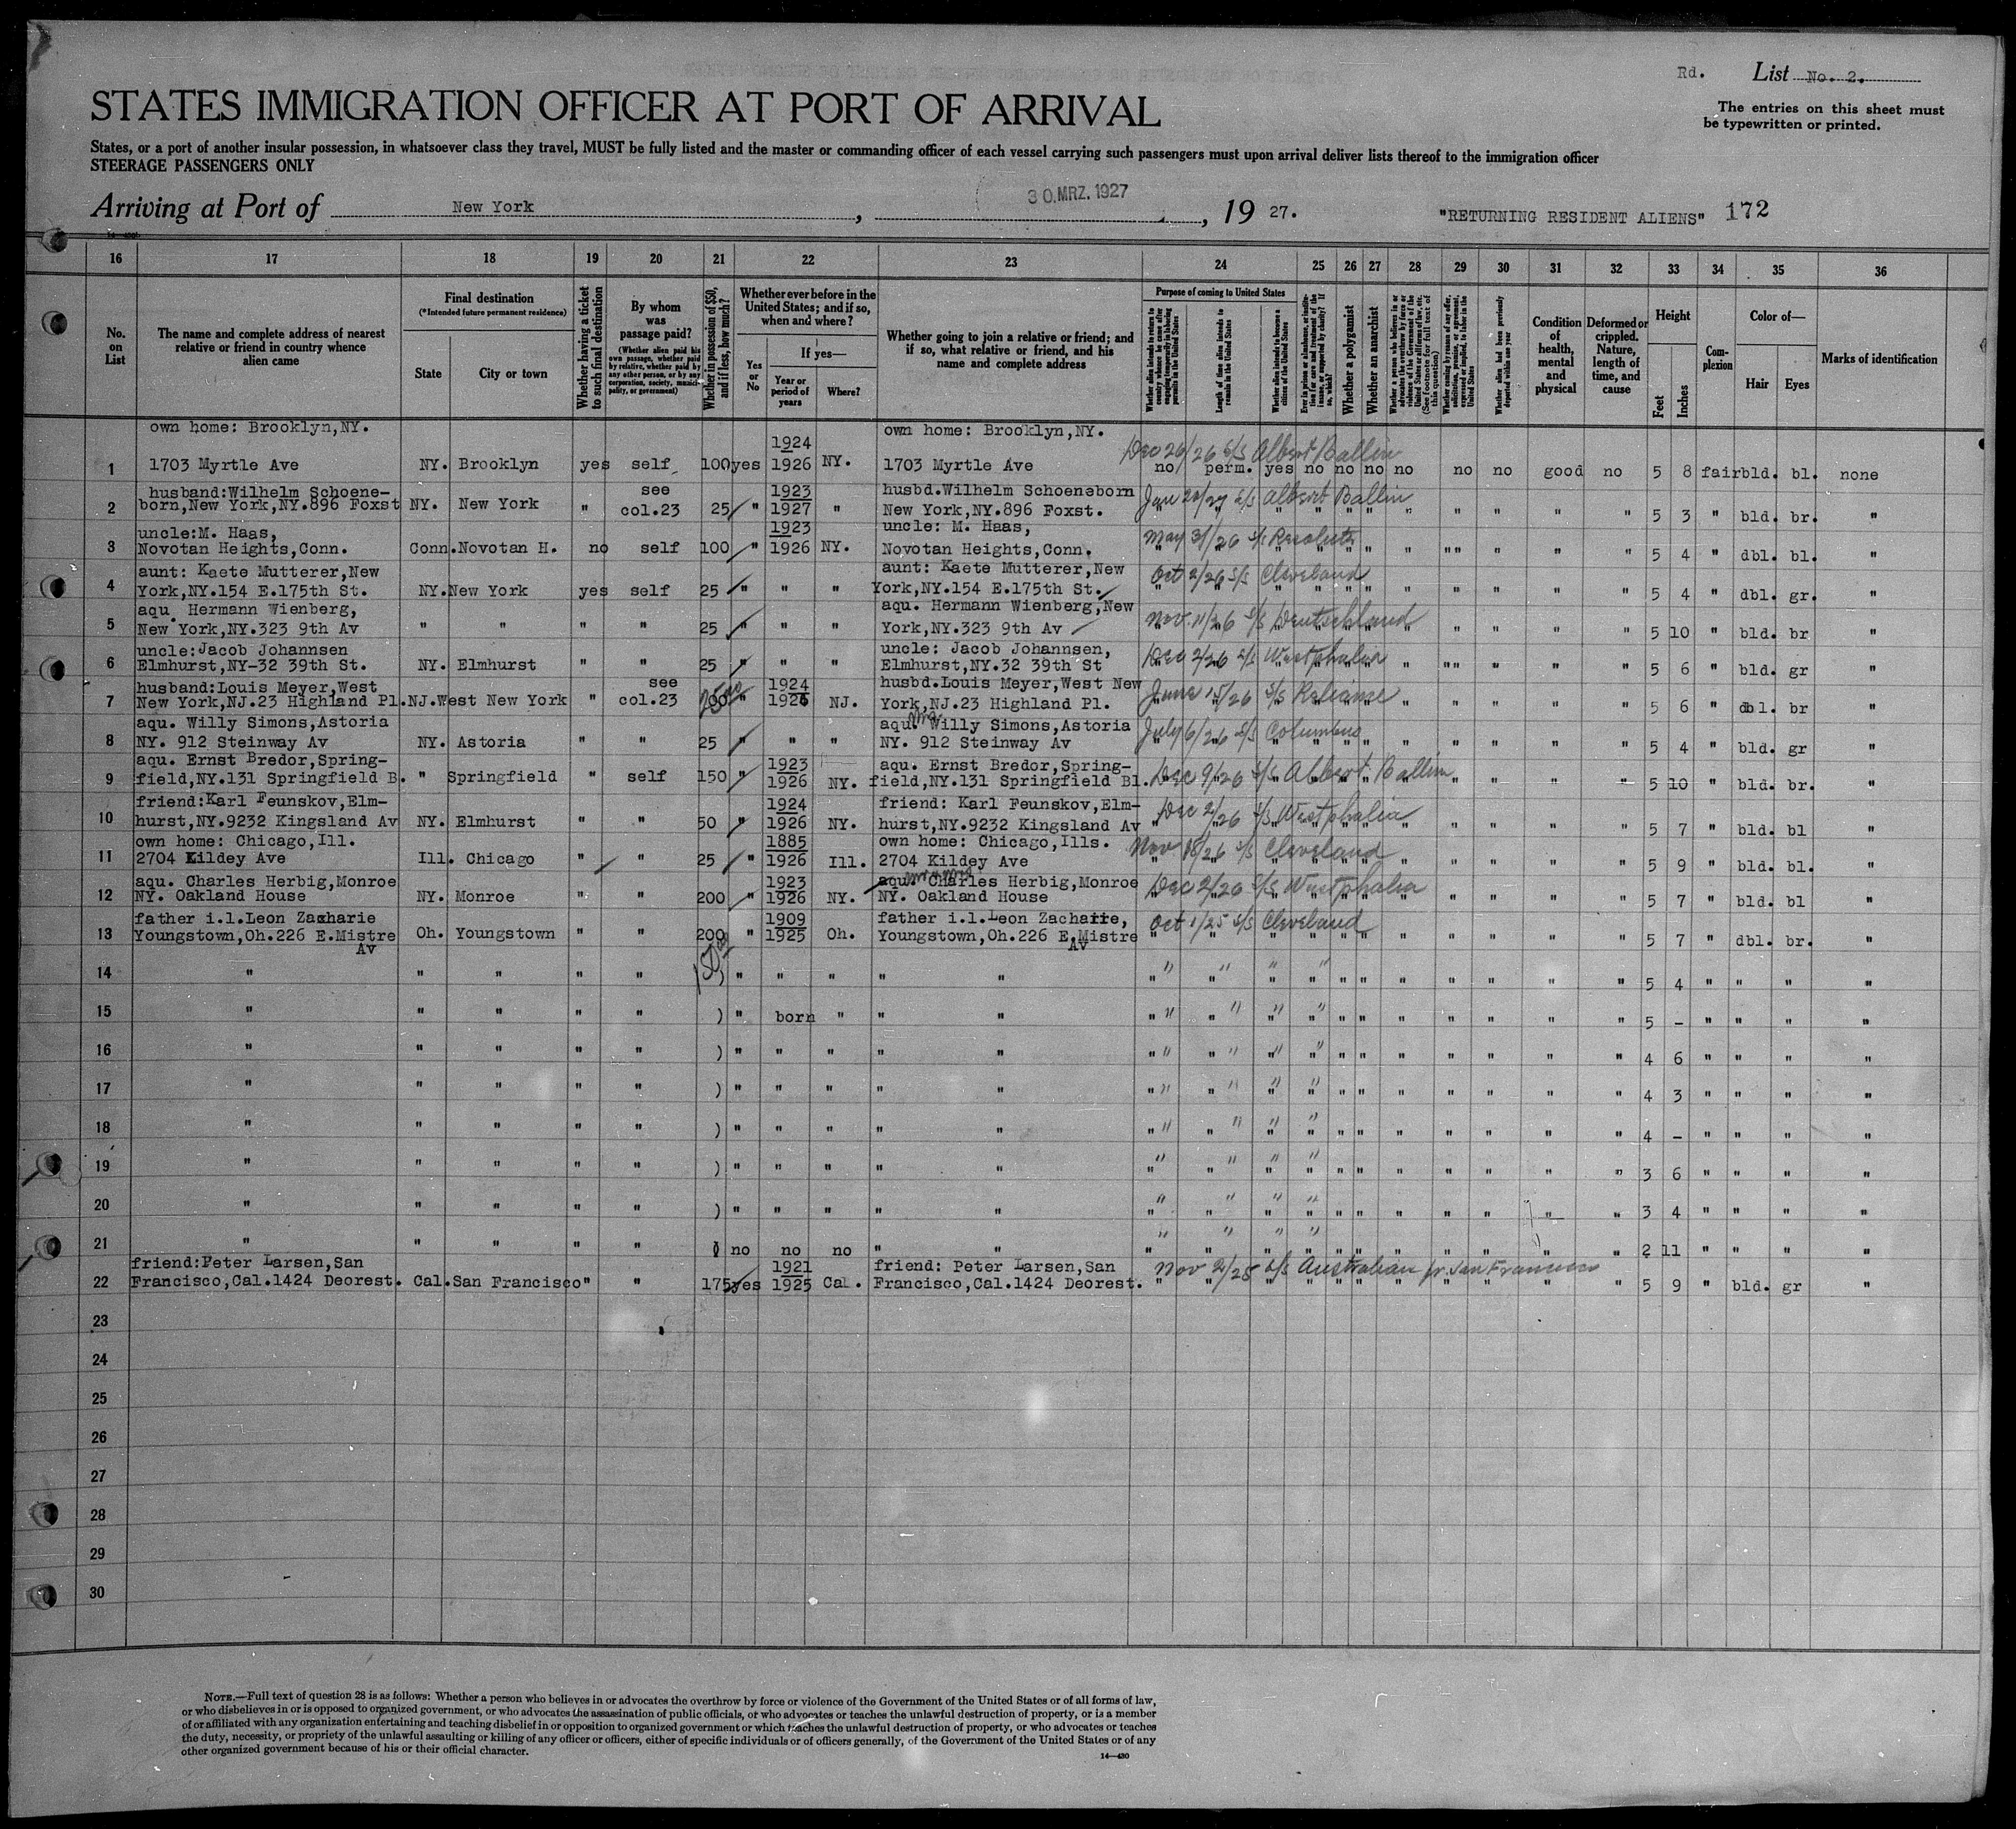 Rd. List No. 2.
STATES IMMIGRATION OFFICER AT PORT OF ARRIVAL
The entries on this sheet must
be typewritten or printed.
States, or a port of another insular possession, in whatsoever class they travel, MUST be fully listed and the master or commanding officer of each vessel carrying such passengers must upon arrival deliver lists thereof to the immigration officer
STEERAGE PASSENGERS ONLY
Arriving at Port of New York, 30.MRZ.1927, 19 27. "RETURNING RESIDENT ALIENS" 172
16 17 18 19 20 21 22 23 24 25 26 27 28 29 30 31 32 33 34 35 36
No. on List
The name and complete address of nearest relative or friend in country whence alien came
Final destination
(*Intended future permanent residence)
State
City or town
Whether having a ticket to such final destination
By whom was passage paid?
(Whether alien paid his own passage, whether paid by relative, whether paid by any other person, or by any corporation, society, municipality, or government)
Whether in possession of $50, and if less, how much?
Whether ever before in the United States; and if so, when and where?
Yes or No
If yes—
Year or period of years
Where?
Whether going to join a relative or friend; and if so, what relative or friend, and his name and complete address
Purpose of coming to United States
Whether alien intends to return to country whence he came after engaging temporarily in laboring pursuits in the United States
Length of time alien intends to remain in the United States
Whether alien intends to become a citizen of the United States
Whether a polygamist
Whether an anarchist
Condition of health, mental and physical
Deformed or crippled. Nature, length of time, and cause
Height
Feet
Inches
Complexion
Color of—
Hair
Eyes
Marks of identification
own home: Brooklyn,NY. 1924 own home: Brooklyn,NY. Dec 26/26 S/S Albert Ballin
1 1703 Myrtle Ave NY. Brooklyn yes self 100 yes 1926 NY. 1703 Myrtle Ave no perm. yes no no no no no no good no 5 8 fair bld. bl. none
husband:Wilhelm Schoene- see 1923 husbd.Wilhelm Schoeneborn S/S Albert Ballin
2 born,New York,NY.896 Foxst NY. New York " col.23 25 " 1927 " New York,NY.896 Foxst. " " " " " " " " " " " 5 3 " bld. br. "
uncle:M. Haas, 1923 uncle: M. Haas, May 31/26 S/S Resolute
3 Novotan Heights,Conn. Conn. Novotan H. no self 100 " 1926 NY. Novotan Heights,Conn. " " " " " " " "" " " " 5 4 " dbl. bl. "
aunt: Kaete Mutterer,New aunt: Kaete Mutterer,New Oct 2/26 S/S Cleveland
4 York,NY.154 E.175th St. NY. New York yes self 25 " " " York,NY.154 E.175th St. " " " " " " " " " " " 5 4 " dbl. gr. "
aqu. Hermann Wienberg, aqu. Hermann Wienberg,New Nov. 11/26 S/S Deutschland
5 New York,NY.323 9th Av " " " " 25 " " " York,NY.323 9th Av " " " " " " " " " " " 5 10 " bld. br "
uncle:Jacob Johannsen uncle: Jacob Johannsen, Dec 2/26 S/S Westphalia
6 Elmhurst,NY-32 39th St. NY. Elmhurst " " 25 " " " Elmhurst,NY.32 39th St " " " " " " " "" " " " 5 6 " bld. gr "
husband:Louis Meyer,West see 1924 husbd.Louis Meyer,West New June 15/26 S/S Reliance
7 New York,NJ.23 Highland Pl. NJ. West New York " col.23 " 1926 NJ. York,NJ.23 Highland Pl. " " " " " " " " " " " 5 6 " dbl. br "
aqu. Willy Simons,Astoria aqu. Mrs Willy Simons,Astoria July 6/26 S/S Columbus
8 NY. 912 Steinway Av NY. Astoria " " 25 " " " NY. 912 Steinway Av " " " " " " " " " " " 5 4 " bld. gr "
aqu. Ernst Bredor,Spring- 1923 aqu. Ernst Bredor,Spring- Dec 9/26 S/S Albert Ballin
9 field,NY.131 Springfield B. " Springfield " self 150 " 1926 NY. field,NY.131 Springfield Bl. " " " " " " " " " " " 5 10 " bld. br. "
friend:Karl Feunskov,Elm- 1924 friend: Karl Feunskov,Elm- Dec 2/26 S/S Westphalia
10 hurst,NY.9232 Kingsland Av NY. Elmhurst " " 50 " 1926 NY. hurst,NY.9232 Kingsland Av " " " " " " " " " " " 5 7 " bld. bl "
own home: Chicago,Ill. 1885 own home: Chicago,Ills. Nov 18/26 S/S Cleveland
11 2704 Kildey Ave Ill. Chicago " " 25 " 1926 Ill. 2704 Kildey Ave " " " " " " " " " " " 5 9 " bld. bl. "
aqu. Charles Herbig,Monroe 1923 aqu. Charles Herbig,Monroe Dec 2/26 S/S Westphalia
12 NY. Oakland House NY. Monroe " " 200 " 1926 NY. NY. Oakland House " " " " " " " " " " " 5 7 " bld. bl "
father i.l.Leon Zacharie 1909 father i.l.Leon Zacharie, Oct 1/25 S/S Cleveland
13 Youngstown,Oh.226 E.Mistre Av Oh. Youngstown " " 200 " 1925 Oh. Youngstown,Oh.226 E.Mistre Av " " " " " " " " " " " 5 7 " dbl. br. "
14 " " " " " ) " " " " " " " " " " " " " " " " " 5 4 " " " "
15 " " " " " ) " born " " " " " " " " " " " " " " " 5 - " " " "
16 " " " " " ) " " " " " " " " " " " " " " " " " 4 6 " " " "
17 " " " " " ) " " " " " " " " " " " " " " " " " 4 3 " " " "
18 " " " " " ) " " " " " " " " " " " " " " " " " 4 - " " " "
19 " " " " " ) " " " " " " " " " " " " " " " " " 3 6 " " " "
20 " " " " " ) " " " " " " " " " " " " " " " " " 3 4 " " " "
21 " " " " " ) no no no " " " " " " " " " " " " " " 2 11 " " " "
friend:Peter Larsen,San 1921 friend: Peter Larsen,San Nov 21/25 S/S Australian fr. San Francisco
22 Francisco,Cal.1424 Deorest. Cal. San Francisco " " 175 yes 1925 Cal. Francisco,Cal.1424 Deorest. " " " " " " " " " " " 5 9 " bld. gr "
23
24
25
26
27
28
29
30
NOTE.—Full text of question 28 is as follows: Whether a person who believes in or advocates the overthrow by force or violence of the Government of the United States or of all forms of law,
or who disbelieves in or is opposed to organized government, or who advocates the assassination of public officials, or who advocates or teaches the unlawful destruction of property, or is a member
of or affiliated with any organization entertaining and teaching disbelief in or opposition to organized government or which teaches the unlawful destruction of property, or who advocates or teaches
the duty, necessity, or propriety of the unlawful assaulting or killing of any officer or officers, either of specific individuals or of officers generally, of the Government of the United States or of any
other organized government because of his or their official character.
14—430